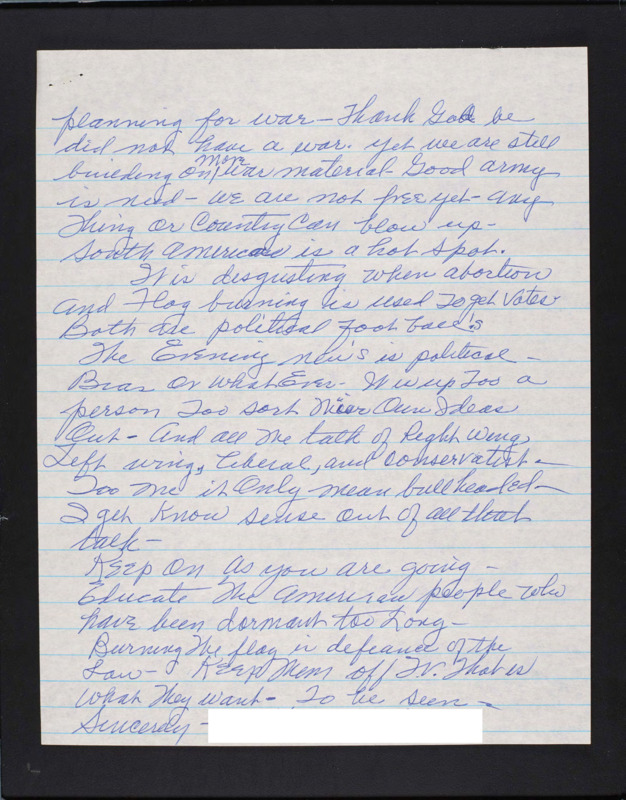 planning for war - Thank God he
did not have a war. yet we are still
buieding on more war material - Good army
is need - we are not free yet - any
Thing or Country Can blow up -
South America is a hot spot.
It is disgusting when abortion
and Flag burning is used To get votes -
Both are political foot baees
The Evening news is political -
Bias or what Ever - It is up Too a
person Too sort Our Ideas
Out - And all the talk of Right Wing,
Left wing, liberal, and conservatist -
Too me it Only mean bullheaded -
I get Know sense out of all that
talk -
KEEp On As you are going -
Educate The American people who
have been dormant too Long -
Burning The flag is defiance of the
Law - KEEp Them off TV. That is
What They want - To be seen -
Sincerely -